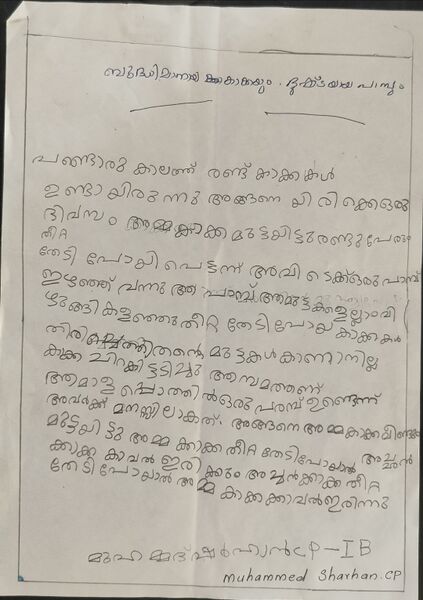 ബുദ്ധിമാനായ കാക്കയും ദുഷ്ടനായ പാമ്പും
പണ്ടൊരു കാലത്ത് രണ്ട് കാക്കകൾ
ഉണ്ടായിരുന്നു അങ്ങനെ യിരിക്കെഒരു
ദിവസം അമ്മക്കാക്ക മുട്ടയിട്ടുരണ്ടുപേരും
തീറ്റ
തേടി പോയി പെട്ടന്ന് അവി ടെക്ക്ഒരു പാമ്പ്
ഇഴഞ്ഞ് വന്നു ആ പാമ്പ് ആമുട്ടകളെല്ലാംവി
ഴുങ്ങി കളഞ്ഞുതീറ്റ തേടിപോയ കാക്കകൾ
തിരിച്ചെത്തിതന്റെ മുട്ടകൾകാണാനില്ല
കാക്ക ചിറക്കിട്ടടിച്ചു ആസമത്താണ്
ആമാള പ്പൊത്തിൽഒരു പാമ്പ് ഉണ്ടെന്ന്
അവർക്ക് മനസ്സിലാകത്. അങ്ങനെ അമ്മകാക്കവീണ്ടും
മുട്ടയിട്ടു അമ്മ ക്കാക്ക തീറ്റ തേടിപോയാൽ അച്ഛൻ
ക്കാക്ക കാവൽ ഇരിക്കും അച്ഛൻക്കാക്ക തീറ്റ
തേടിപോയാൽ അമ്മ കാക്കക്കാവൽഇരിന്നു
മുഹമ്മദ് ഷർഹാൻCP-IB
muhammed Sharhan.CP